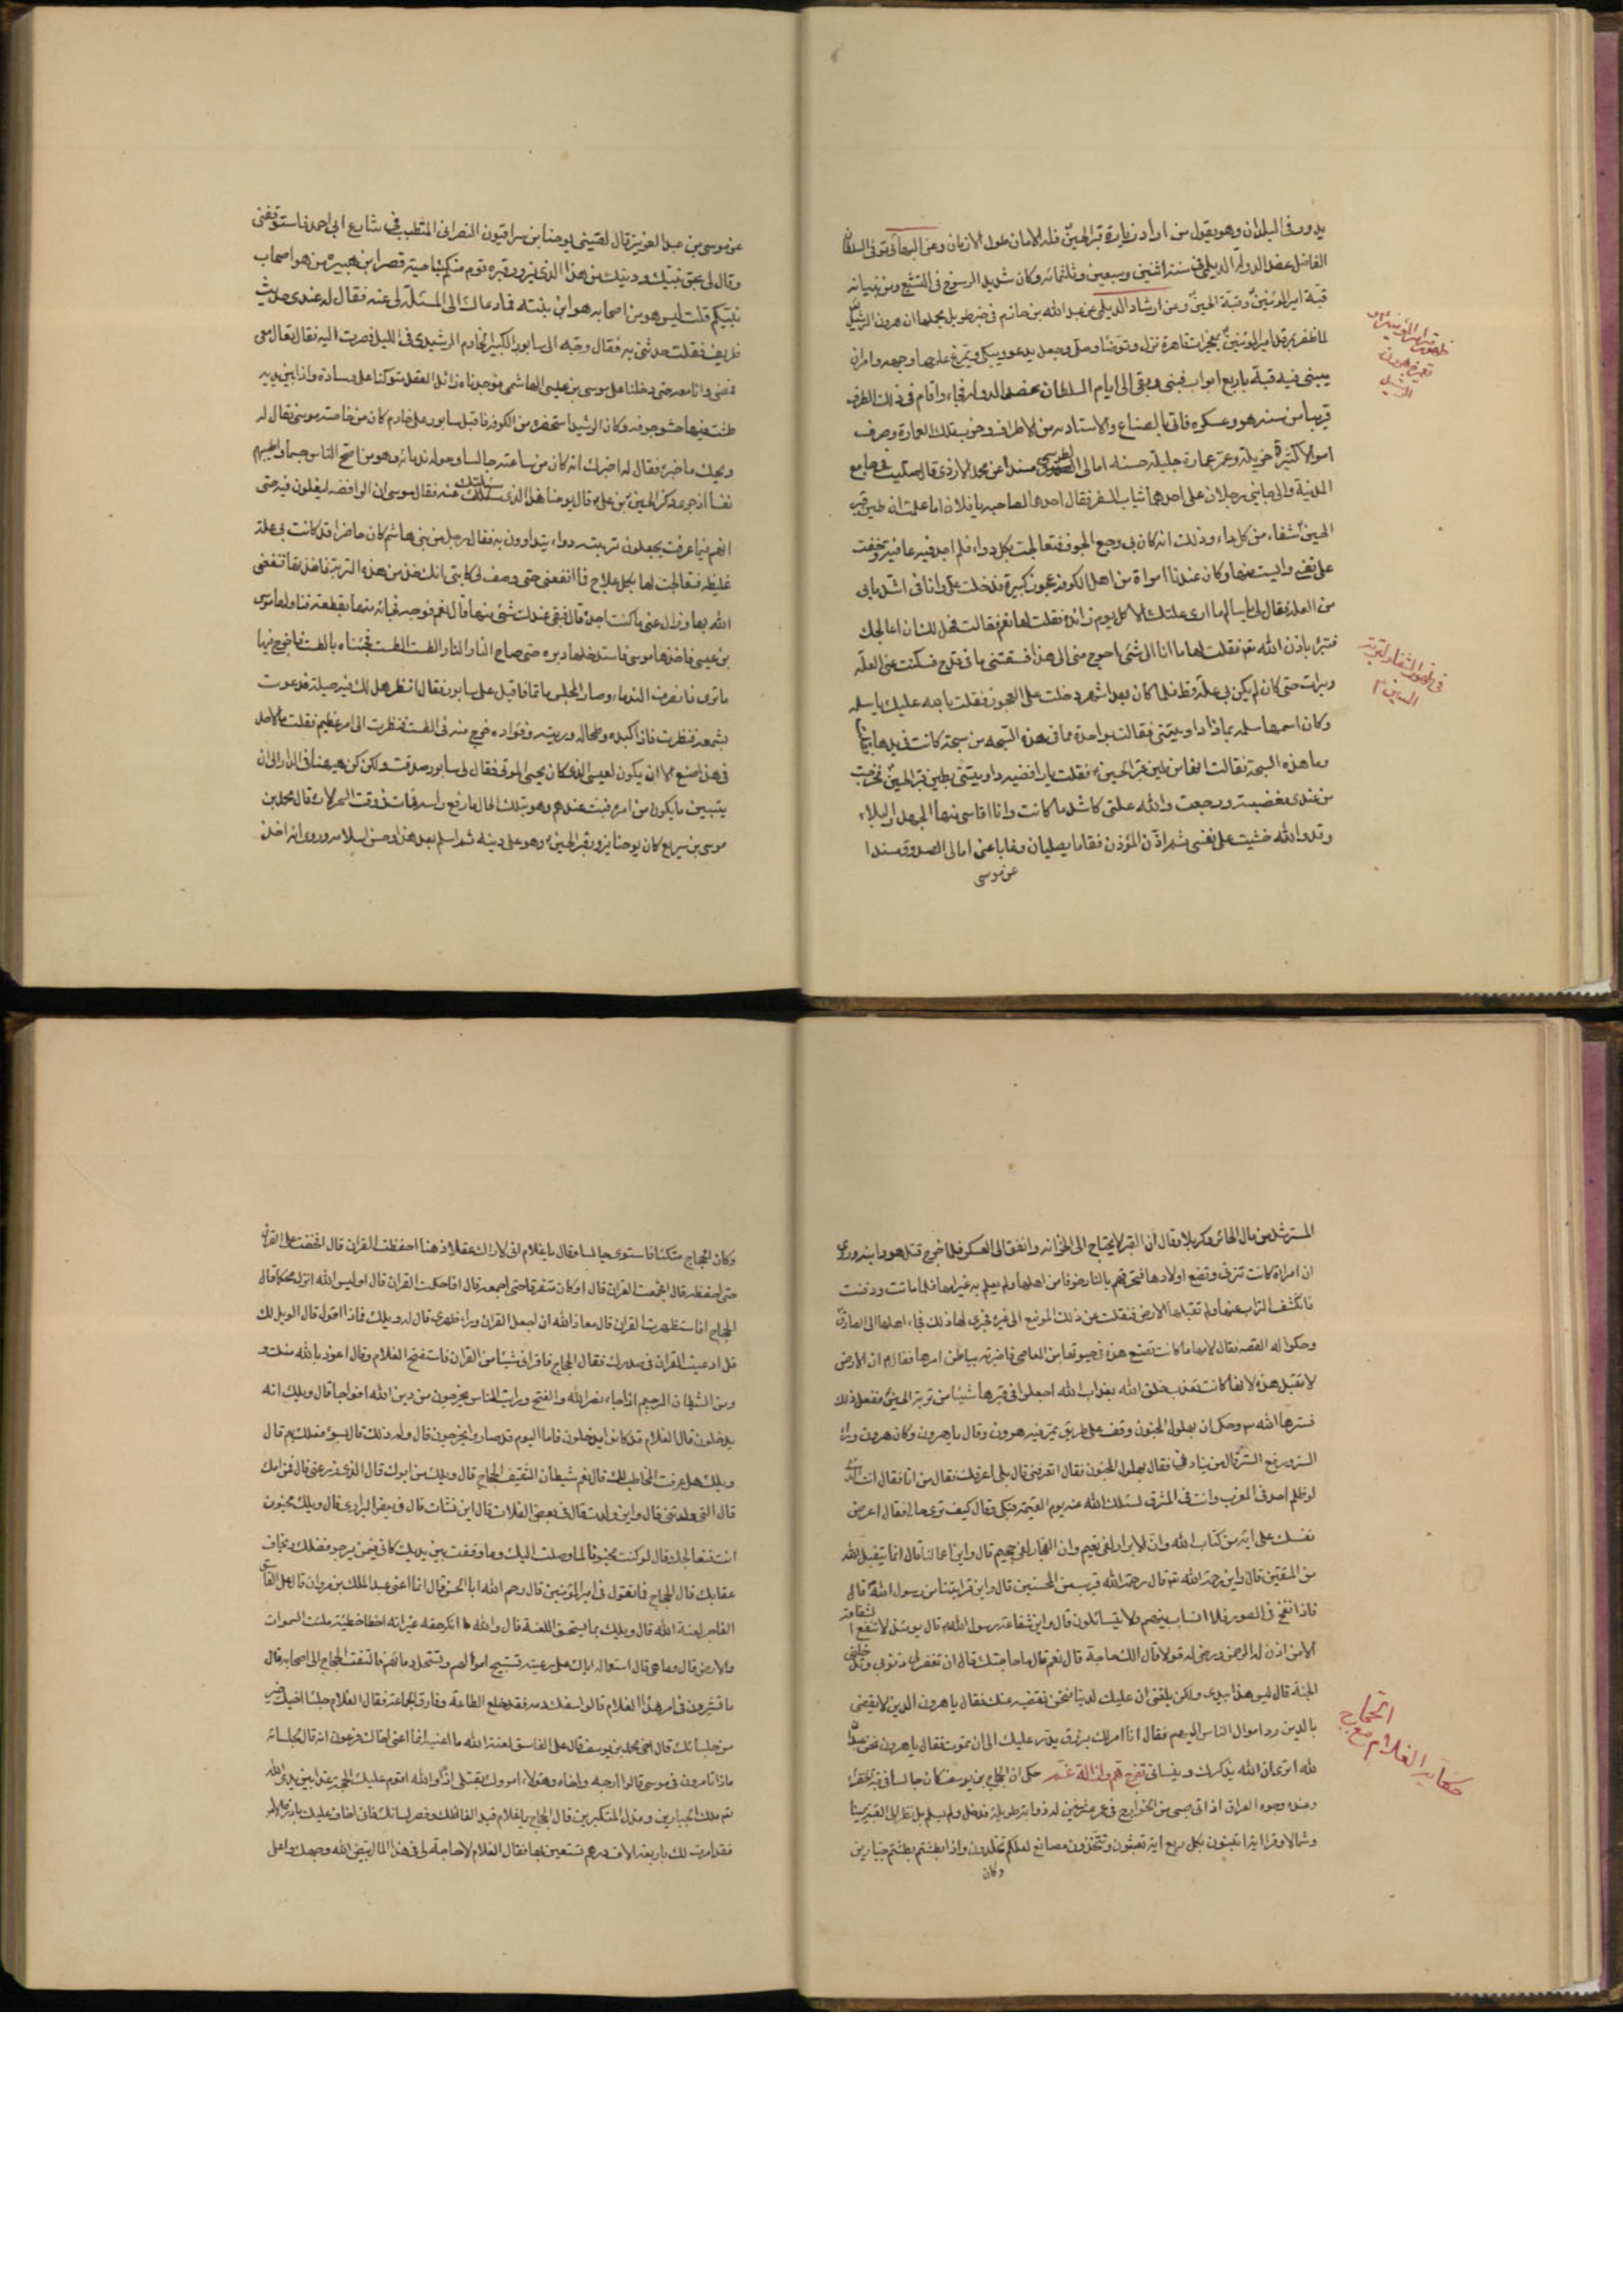 يدور في البلدان وهو يقول من اراد زيارة قبر الحسين فله الامان طول الازمان وعن البهائي توفى السلطان
الفاضل عضد الدولة الديلمي في سنة اثنتين وسبعين وثلثمائه وكان شديد الرسوخ في التشيع ومن بنيانه
قبة امير المؤمنين وقبة الحسين وعن ارشاد الديلمي عن عبد الله بن حازم في خبر طويل مجملها ان هرون الرشيد
لما ظفر بقبر امير المؤمنين بمعجزات قاهرة نزل وتوضا وصلى وجعل يدعو ويبكي ويتمرغ عليها وجهه وامر ان
يبنى فيه قبة باربع ابواب فبنى وبقى الى ايام السلطان عضد الدوله فجاء واقام في ذلك الطرف
قريبا من سنه هو وعسكره فاتى بالصناع والاستاديه من الاطراف وخرب تلك العمارة وصرف
اموالا كثيرة جزيلة وعمر عمارة جليلة حسنه امالى الطوسي مسندا عن محمد الازدي قال صليت في جامع
المدينة والى جانبي رجلان على احدهما ثياب السفر فقال احدهما لصاحبه يا فلان اما علمت ان طين قبر
الحسين شفاء من كل داء وذلك انه كان بى وجع الجوف فتعالجت بكل دواء فلم اجد فيه عافية وخفت
على نفسي وايست منها وكان عندنا امراة من اهل الكوفه عجوز كبيرة فدخلت علي وانا في اشد ما بي
من العلة فقال لي يا سالم ما ارى علتك الا كل يوم زائدة فقلت لها نعم فقالت فهل لك ان اعالجك
فتبرء باذن الله تع فقلت لها ما انا الى شئ احوج منى الى هذا فسقتنى ماء في قدح فسكنت عنى العلة
وبرات حتى كان لم يكن بى علة قط فلما كان بعد اشهر دخلت على العجوز فقلت بالله عليك يا سلمه
وكان اسمها سلمه بماذا داويتنى فقالت بواحدة مما في هذه السبحه من سبحة كانت في يدها
وما هذه السبحة فقالت انها من طين قبر الحسين فقلت يا رافضيه داويتنى بطين قبر الحسين فخرجت
من عندى مغضبة ورجعت والله علتى كاشد ما كانت وانا اقاسي منها الجهد والبلاء
وقد والله خشيت على نفسي ثم اذن المؤذن فقاما يصليان وغابا عنى امالى الصدوق مسندا
عن موسى
ظهور قبر امير المؤمنين
هرون
الرشيد
في ظهور الشفاء لتربة
الحسين
عن موسى بن عبد العزيز قال لقيني يوحنا بن سراقيون النصراني المتطبب في شارع ابي احمد فاستوقفنى
وقال لى بحق نبيك ودينك من هذا الذي يزور قبره قوم منكم بناحية قصر ابن هبيره من هو اصحاب
نبيكم قلت ليس هو من اصحابه هو ابن بنته فما دعاك الى المسئلة لى عنه فقال له عندى حديث
ظريف فقلت حدثنى به فقال وجه الى سابور الكبير الخادم الرشيدي في الليل فصرت اليه فقال تعال معى
فمضى وانا معه حتى دخلنا على موسى بن عيسى الهاشمى فوجدناه زائل العقل متوكئا على وسادة واذا بين يديه
طشت فيها حشو جوفه وكان الرشيد استحضره من الكوفه فاقبل سابور على خادم كان من خاصة موسى فقال له
ويحك ما خبره فقال له اخبرك انه كان من ساعته جالسا وحوله ندمائه وهو من اصح الناس جسما واطيبهم
نفسا اذ جرى ذكر الحسين بن علي قال يوحنا هذا الذي سئلتك عنه فقال موسى ان الرافضه ليغلون فيه حتى
انهم فيما عرفت يجعلون تربته دواء يتداوون به فقال رجل من بنى هاشم كان حاضرا قد كانت بى علة
غليظه فتعالجت لها بكل علاج فما انفعنى حتى وصف لى كاتبى انك خذ من هذه التربة فاخذتها فنفعنى
الله بها وزال عنى ما كنت اجده قال فبقى عندك شئ منها قال نعم فوجه فجائه منها بقطعه فناولها موسى
بن عيسى فاخذها موسى فاستدخلها دبره حتى صاح النار النار الطست الطست فجئناه بالطست فاخرج فيها
ما ترى فانصرف الندماء وصار المجلس ماتما فاقبل على سابور فقال انظر هل لك فيه حيلة فدعوت
بشمعه فنظرت فاذا كبده وطحاله وريته وفؤاده خرج منه في الطست فنظرت الى امر عظيم فقلت ما لاحد
في هذا صنع الا ان يكون لعيسى الذي كان يحيى الموتى فقال لى سابور صدقت ولكن كن هيهنا في الدار الى ان
يتبين ما يكون من امره فبت عندهم وهو بتلك الحال ما رفع راسه فمات في وقت السحر قال محمد بن
موسى بن سريع كان يوحنا يزور قبر الحسين وهو على دينه ثم اسلم بعد هذا وحسن اسلامه وروى انه اخذ
المسترشد من مال الحائر وكربلا وقال ان القبر لا يحتاج الى الخزانه وانفق الى العسكر فلما خرج قتل هو وابنه وروى
ان امراة كانت تزنى وتضع اولادها فتحرقهم بالنار خوفا من اهلها ولم يعلم به غير امها فلما ماتت ودفنت
فانكشف التراب عنها ولم تقبلها الارض فنقلت عن ذلك الموضع الى غيره فجرى لها ذلك فجاء اهلها الى الصادق
وحكوا له القصه فقال لامها ما كانت تصنع هذه في حيوتها من المعاصي فاخبرته بباطن امرها فقال ان الارض
لا تقبل هذه لانها كانت تعذب خلق الله بعذاب الله اجعلوا في قبرها شيئا من تربة الحسين ففعل ذلك
فسترها الله وحكى ان بهلول المجنون وقف على طريق يمر فيه هرون وقال يا هرون وكان هرون وراء
الستر ورفع الستر قال من يناد فقال بهلول المجنون فقال اتعرفنى قال بلى اعرفك فقال من انا فقال انت الذي
لو ظلم احد في المغرب وانت في المشرق لسئلك الله عنه يوم القيمة فبكى وقال كيف ترى حالى فقال اعرض
نفسك على اية من كتاب الله وان الابرار لفي نعيم وان الفجار لفي جحيم قال واين اعمالنا قال انما يتقبل الله
من المتقين قال واين رحمة الله قال رحمة الله قريب من المحسنين قال واين قرابتنا من رسول الله قال
فاذا نفخ في الصور فلا انساب بينهم ولا يتسائلون قال واين شفاعة رسول الله قال يومئذ لا تنفع الشفاعة
الا من اذن له الرحمن ورضى له قولا قال الك حاجة قال نعم قال ما حاجتك قال ان تغفر لى ذنوبى وتدخلني
الجنة قال ليس هذا بيدى ولكن بلغنى ان عليك لدينا فنحن نقضيه عنك فقال يا هرون الدين لا يقضى
بالدين رد اموال الناس اليهم فقال انا امر لك برزق يدر عليك الى ان تموت فقال يا هرون نحن عبدا
لله اترى ان الله يذكرك وينسانى تفرج هم وازالة غم حكى ان الحجاج بن يوسف كان جالسا في
وعنده وجوه العراق اذ اتى صبى من الخوارج له ذوابة طويلة فدخل ولم يسلم بل نظر الى القبة يمينا
وشمالا وقرا اتبنون بكل ريع اية تعبثون وتتخذون مصانع لعلكم تخلدون واذا بطشتم بطشتم جبارين
وكان
حكاية الغلام مع
الحجاج
وكان الحجاج متكئا فاستوى جالسا وقال يا غلام انى لا اراك عقلا وذهنا احفظت القران قال اخفت على القران
حتى احفظه قال اجمعت القران قال اوكان متفرقا حتى اجمعه قال افاحكمت القران قال اوليس الله انزله محكما قال
الحجاج افاستظهرت القران قال معاذ الله ان اجعل القران وراء ظهرى قال له ويلك فماذا اقول قال الويل لك
قل اوعيت القران في صدرك فقال الحجاج فاقرا لى شيئا من القران فاستفتح الغلام وقال اعوذ بالله منك و
ومن الشيطان الرجيم اذا جاء نصر الله والفتح ورايت الناس يخرجون من دين الله افواجا قال ويلك انه
يدخلون قال الغلام قد كانوا يدخلون فاما اليوم قد صاروا يخرجون قال ولم ذلك قال لسوء فعلك بهم قال
ويلك هل عرفت المخاطب لك قال نعم شيطان الثقيف الحجاج قال ويلك من ابوك قال الذي زرعنى قال فمن امك
قال التى ولدتنى قال واين ولدت قال في بعض الفلات قال اين نشات قال في بعض البرارى قال ويلك مجنون
انت فنعالجك قال لو كنت مجنونا لما وصلت اليك وما وقفت بين يديك كانى فيمن يرجو فضلك ويخاف
عقابك قال الحجاج فما تقول في امير المؤمنين قال رحم الله ابا الحسن قال انما اعنى عبد الملك بن مروان قال على الفاسق
الفاجر لعنة الله قال ويلك بما يستحق اللعنة قال والله ما انكر حقه غير انه اخطا خطيئة ملئت السموات
والارض قال وما هى قال استعماله اياك على رعيته تستبيح اموالهم وتستحل دمائهم فالتفت الحجاج الى اصحابه قال
ما تشيرون في امر هذا الغلام قالوا اسفك دمه فقد خلع الطاعة وفارق الجماعة فقال الغلام جلساء اخيك خير
من جلسائك قال اخى محمد بن يوسف قال على الفاسق لعنة الله ما اعنيه انما اعنى اخاك فرعون انه قال لجلسائه
ماذا تامرون في موسى قالوا ارجه واخاه وهؤلاء امروك بقتلى اذا والله اقوم عليك الحجة غدا بين يدى الله
ثم ملك الجبارين ومذل المتكبرين قال الحجاج يا غلام قيد الفاظك وقصر لسانك فانى اخاف عليك بادرة الامر
فقد امرت لك باربعة الاف درهم تستعين بها فقال الغلام لا حاجة لى في هذا المال بيض الله وجهك واعلى